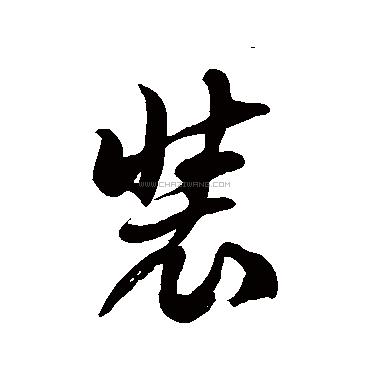 裝
WWW.CHAZIWANG.COM